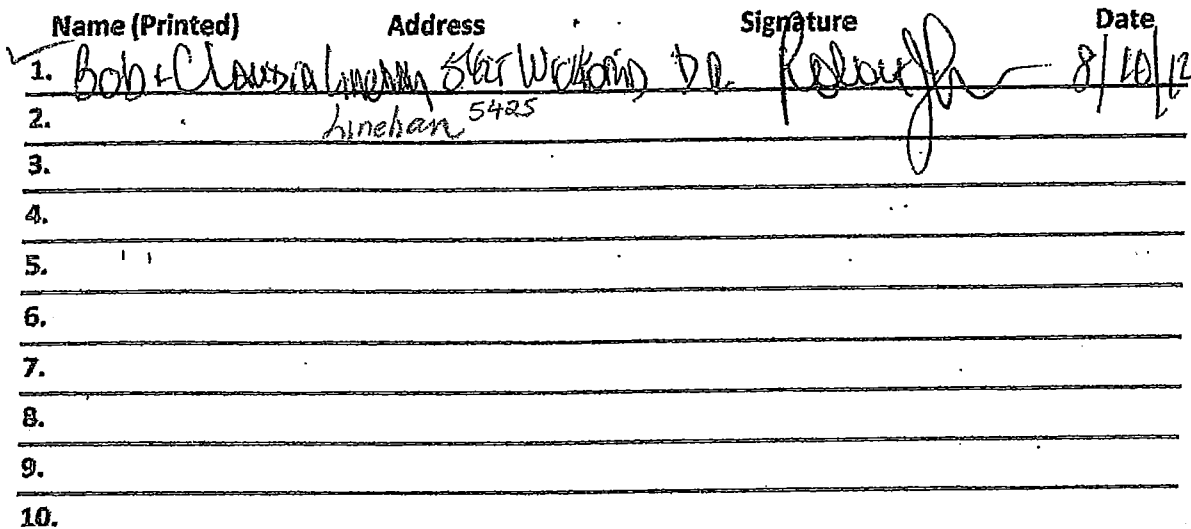 Name (Printed) Address Signature Date
1. Bob + Claudia Linehan 5425 Dr. 8/10/12
2. Linehan 5425
3.
4.
5.
6.
7.
8.
9.
10.